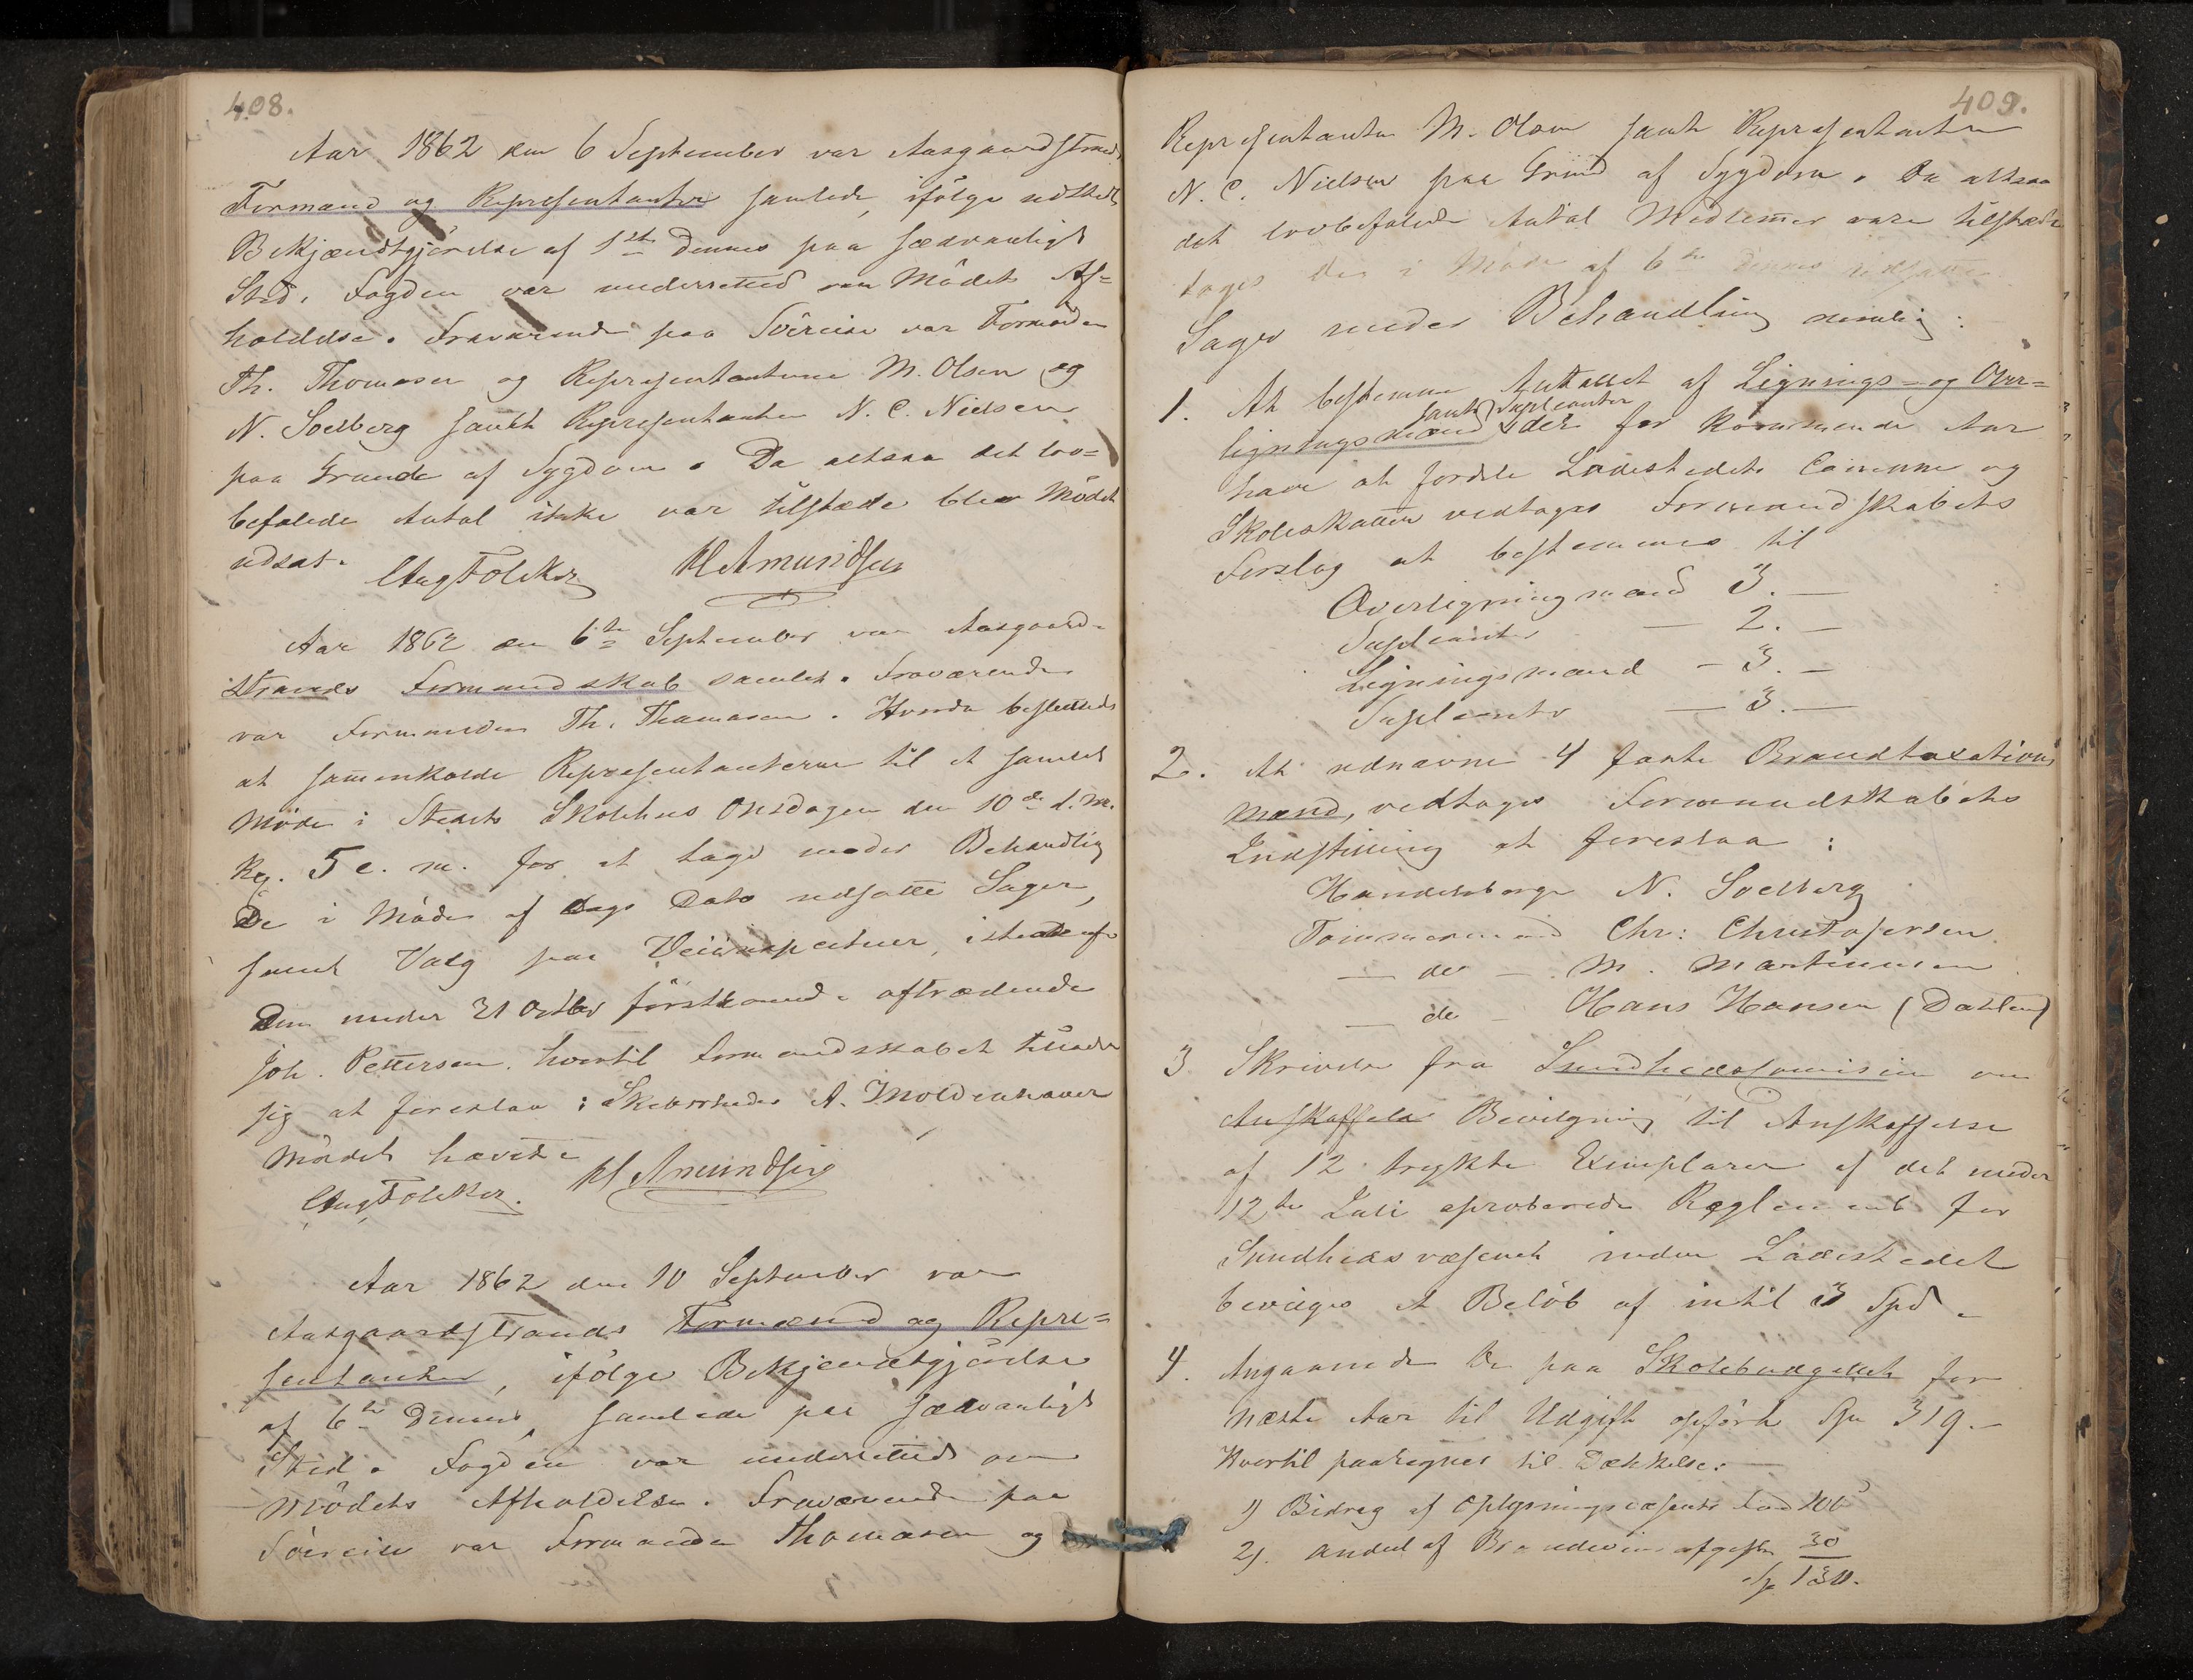 408.
Aar 1862 den 6 September var Aasgaardstrands
Formænd og Repræsentanter samlede, ifølge udstedt
Bekjændtgjørelse af 1ste dennes paa sædvanligt
Sted. Fogden var underrettet om Mødets Af=
holdelse. Fraværende paa Søireise var Formanden
Th. Thomasen og Repræsentanterne M. Olsen og
N. Soelberg samt Repræsentanten N. C. Nielsen
paa Grund af Sygdom. Da altsaa det lov=
befalede Antal ikke var tilstæde blev Mødet
udsat.
Aug Foleker HAmundsen
Aar 1862 den 6te September var Aasgaard-
strands Formandskab samlet. Fraværende
var Formanden Th. Thomasen. Hvorda bestemtes
at sammenkalde Repræsentanterne til et samlet
Møde i Stedets Skolehus Onsdagen den 10de d. M.
Kl. 5 e. m. for at tage under Behandling
De i Møde af Dags Dato udsatte Sager,
samt Valg paa Veiinspecteur, istedetfor
Den under 31 Octbr førstkommende aftrædende
Joh. Pettersen. hvortil Formandskabet tillader
sig at foreslaa: Skibsreder A. Moldenhauer
Mødet hævet
Aug Foleker. HAmundsen
Aar 1862 den 10 September var
Aasgaardstrands Formænd og Repræ=
sentanter, ifølge Bekjendtgjørelse
af 6te Dennes, samlede paa sædvanligt
Sted. Fogden var underrettet om
Mødets Afholdelse. Fraværende paa
Søireise var Formanden Thomasen og
409.
Repræsentanten M. Olsen samt Repræsentanten
N. C. Nielsen paa Grund af Sygdom. Da altsaa
det lovbefalede Antal Medlemmer vare tilstæde
toges de i Møde af 6te dennes udsatte
Sager under Behandling nemlig:
1. At bestemme Antallet af Lignings- og Over=
samt Supleanter
ligningsmænd der for kommende Aar
have at fordele Ladestedets Commune og
Skoleskatter vedtoges Formandskabets
Forslag at bestemmes til
Overligningsmænd 3. —
Supleanter — 2. —
Ligningsmænd — 3. —
Supleanter — 3. —
2. At udnævne 4 faste Brandtaxations
mænd, vedtoges Formandskabets
Indstilling at foreslaa:
Handelsborger N. Soelberg
Tømmermand Chr: Christofersen
— do — M. Martinusen
— do — Hans Hansen (Dahlen)
3 Skrivelse fra Sundhedscomisionen om
Anskaffelse Bevilgning til Anskaffelse
af 12 trykte Exemplarer af det under
12te Juli aproberede Reglement for
Sundhedsvæsenet inden Ladestedet
bevilges et Beløb af intil 3 Spd.
4. Angaaende De paa Skolebudgettet for
næste Aar til Udgift opførte Sp 319.—
Hvortil paaregnes til Dækkelse:
1) Bidrag af Oplysningsvæsenets Fond 100
2). Andeel af Brændevinsafgiften 30
Sp 130.